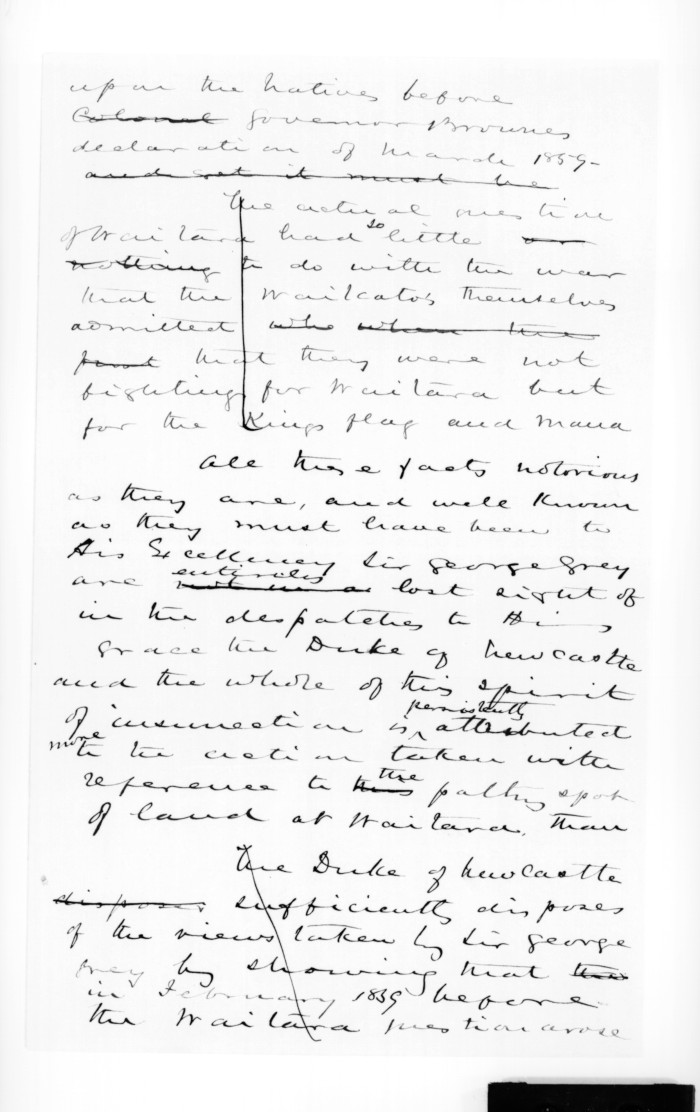 upon the Natives before
Colonel Governor Brownes
declaration of March 1859-
and yet it must be
The actual question
of Waitara had so little or
nothing to do with the war
that the Waikatos themselves
admitted who when the
that they were not
fighting for Waitara but
for the Kings flag and Mana
All these facts notorious
as they are, and well known
as they must have been to
His Excellency Sir George Grey
are entirely lost sight of
in the despatches to His
Grace the Duke of Newcastle
and the whole of this spirit
of insurrection is persistently attributed
more to the action taken with
reference to this the paltry spot
of land at Waitara, than
The Duke of Newcastle
disposes sufficiently disposes
of the views taken by Sir George
Grey by showing that the
in February 1859 before
the Waitara question arose